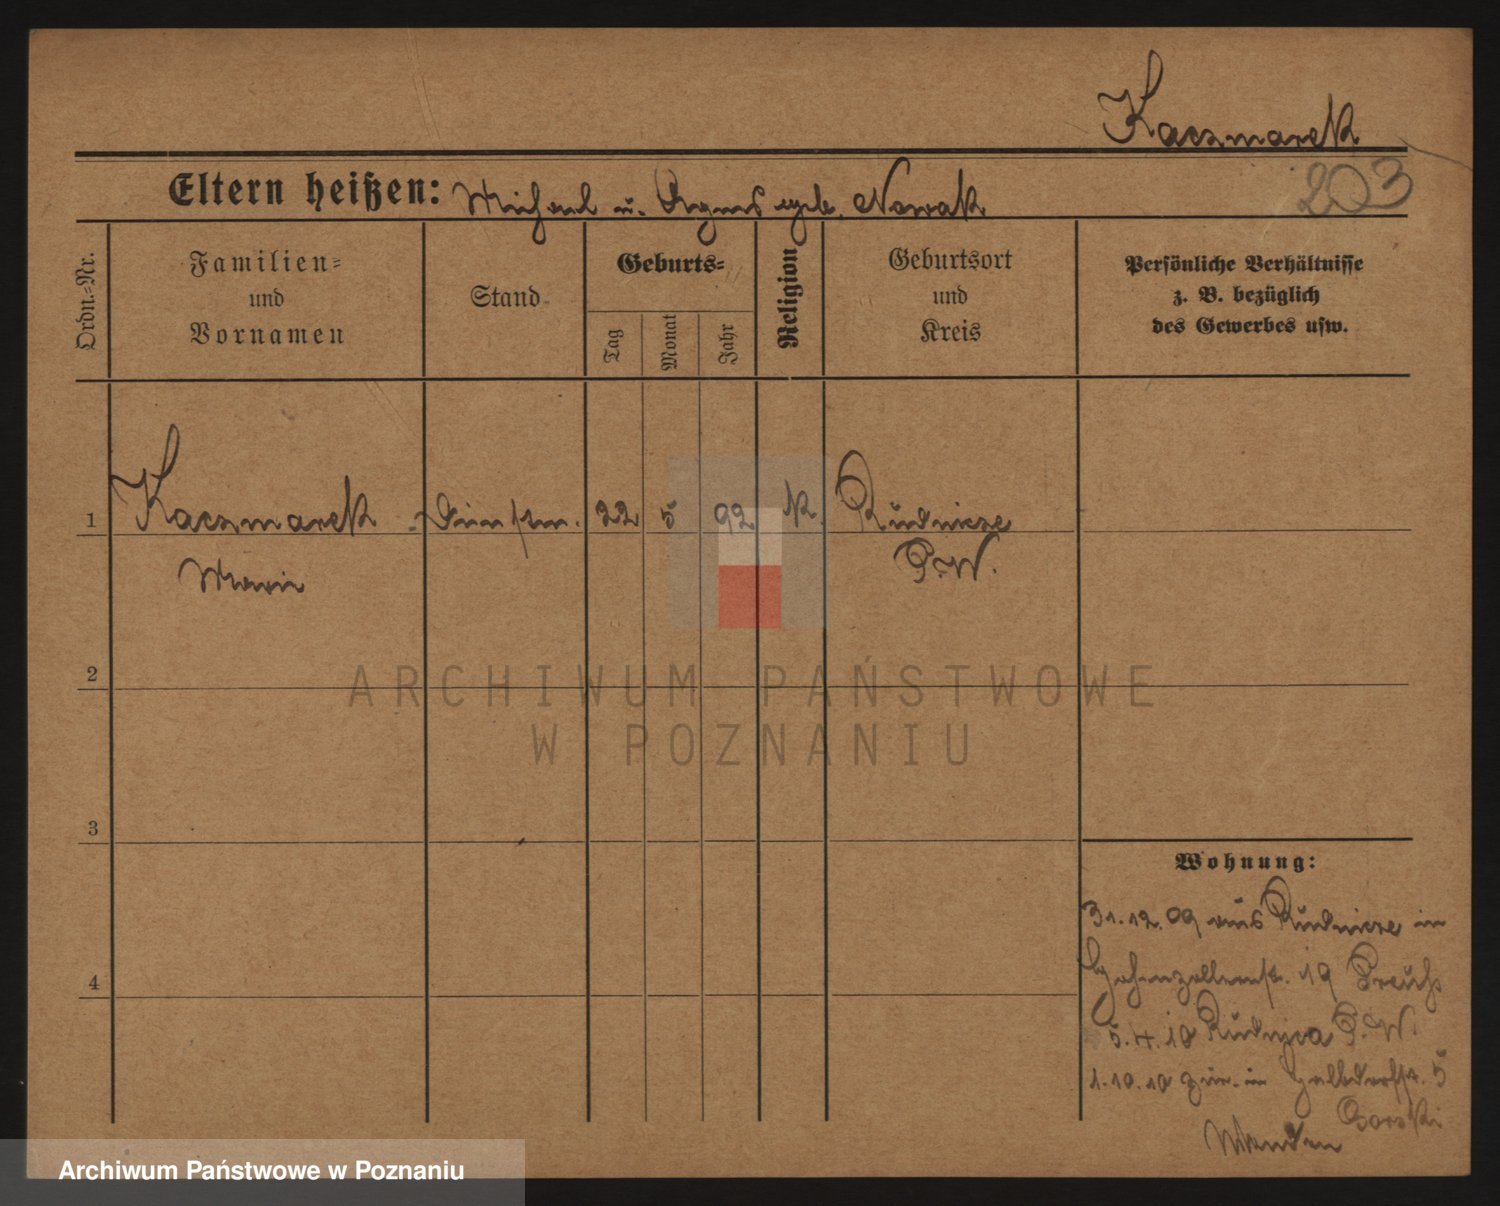 Kaczmarek
203
Eltern heißen: Michael u. Agnes geb. Nowak
Ordn.=Nr.
Familien=
und
Vornamen
Stand
Geburts=
Tag
Monat
Jahr
Religion
Geburtsort
und
Kreis
Persönliche Verhältnisse
z. B. bezüglich
des Gewerbes usw.
1 Kaczmarek Dienstm. 22 5 92 k. Rudnicze
Marie P.W.
2
3
4
ARCHIWUM PAŃSTWOWE
W POZNANIU
Wohnung:
31.12.09 aus Rudnicze in
Hohenzollernst. 19 Preuß
5.4.10 P.W.
1.10.10 zur. in Halbdorfst. 5
Gorski
Archiwum Państwowe w Poznaniu